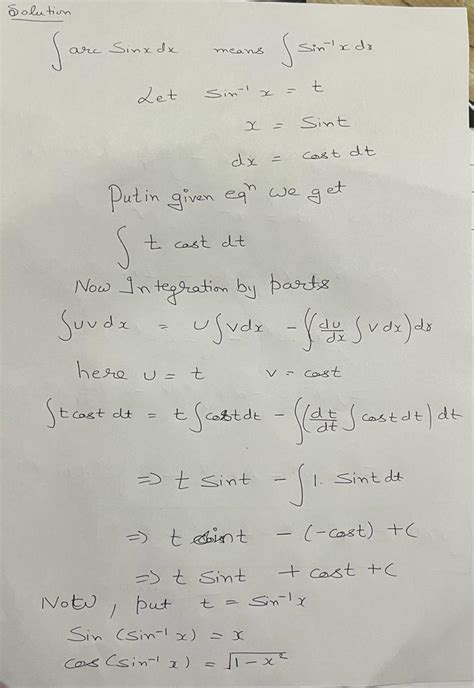 Solution
∫ arc Sinx dx means ∫ Sin⁻¹ x dx
Let Sin⁻¹ x = t
x = Sint
dx = cost dt
Put in given eqⁿ we get
∫ t cost dt
Now Integration by parts
∫uvdx = u∫vdx - ∫(du/dx ∫vdx)dx
here u = t v = cost
∫t cost dt = t∫costdt - ∫(dt/dt ∫cost dt) dt
=> t sint - ∫1. Sint dt
=> t sint - (-cost) + C
=> t Sint + cost + C
Now, put t = Sin⁻¹x
Sin (sin⁻¹ x) = x
cos (sin⁻¹ x) = √(1-x²)